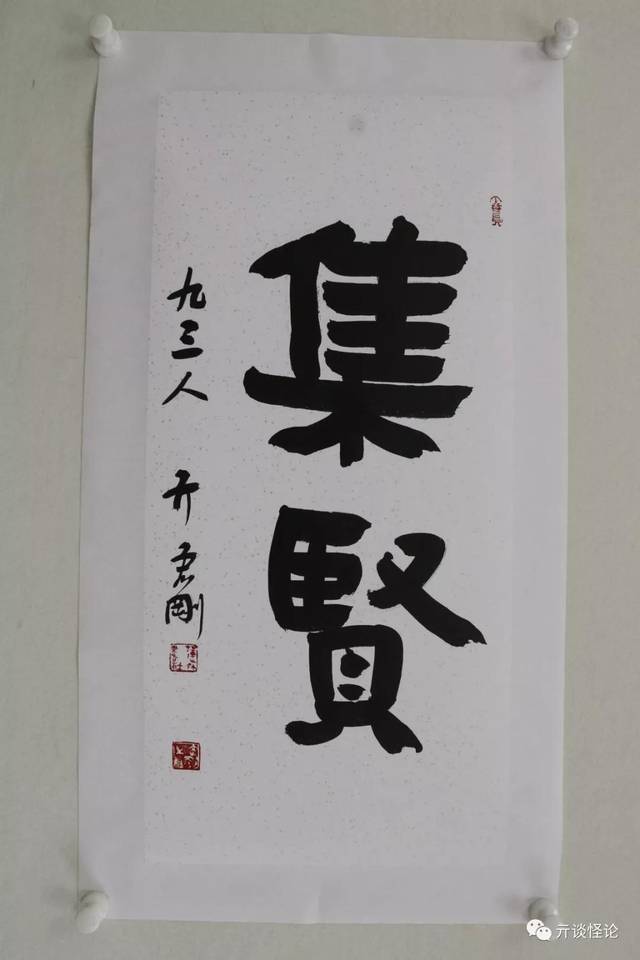 集賢
九三人 亓君剛
亓谈怪论